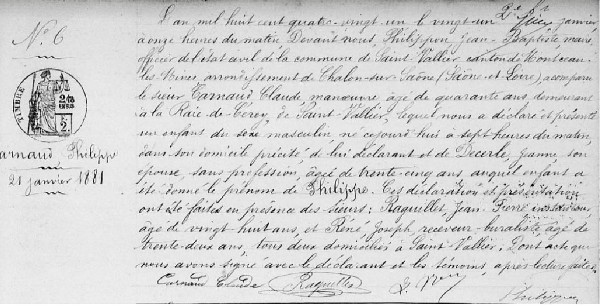 N.º 6
TIMBRE
2/10
Philipp
21 janvier 1881
L'an mil huit cent quatre-vingt-un le vingt-un janvier
à onze heures du matin, Devant nous, Philippon Jean-Baptiste maire,
officier de l'état civil de la commune de Saint-Vallier, canton de Montceau-
les-Mines arrondissement de Chalon-sur-Saône (Saône-et-Loire), a comparu
le sieur Carnaud Claude manœuvre, âgé de quarante ans, demeurant
à la Raie-de-Cercy, de Saint-Vallier, lequel nous a déclaré et présenté
un enfant du sexe masculin né cejourd'hui à sept heures du matin,
dans son domicile précité, de lui déclarant et de Decerle, Jeanne, son
épouse, sans profession, âgée de trente-cinq ans, auquel enfant a
été donné le prénom de Philippe. Ces déclaration et présentation
ont été faites en présence des sieurs: Raquillet, Jean-Pierre instituteur
âgé de vingt-huit ans, et Réné, Joseph, receveur-buraliste, âgé de
trente-deux ans, tous deux domiciliés à Saint-Vallier, Dont acte que
nous avons signé avec le déclarant et les témoins, après lecture faite.
Carnaud Claude Raquillet